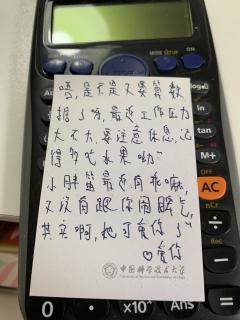 MODE SETUP
唔,是不是又要算数
据了呀,最近工作压力
大不大,要注意休息,记
得多吃水果呦~
小胖笛最近有乖嘛,
又没有跟你闹脾气,
其实啊,他可爱你了~
♡爱你
中国科学技术大学
University of Science and Technology of China
log
ln
tan
)
M+
AC
nCr
÷
0
•
×10ˣ
Ans